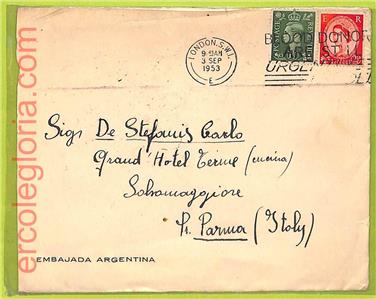 LONDON. S.W.1.
9-AM
3 SEP
1953
E
BLOOD DONOR
ARE STILL
URGENT
POSTAGE REVENUE
E R
Sigr De Stefanis Carlo
Grand Hotel Terme (cucina)
Salsomaggiore
Pr. Parma (Italy)
EMBAJADA ARGENTINA
ercolegloria.com